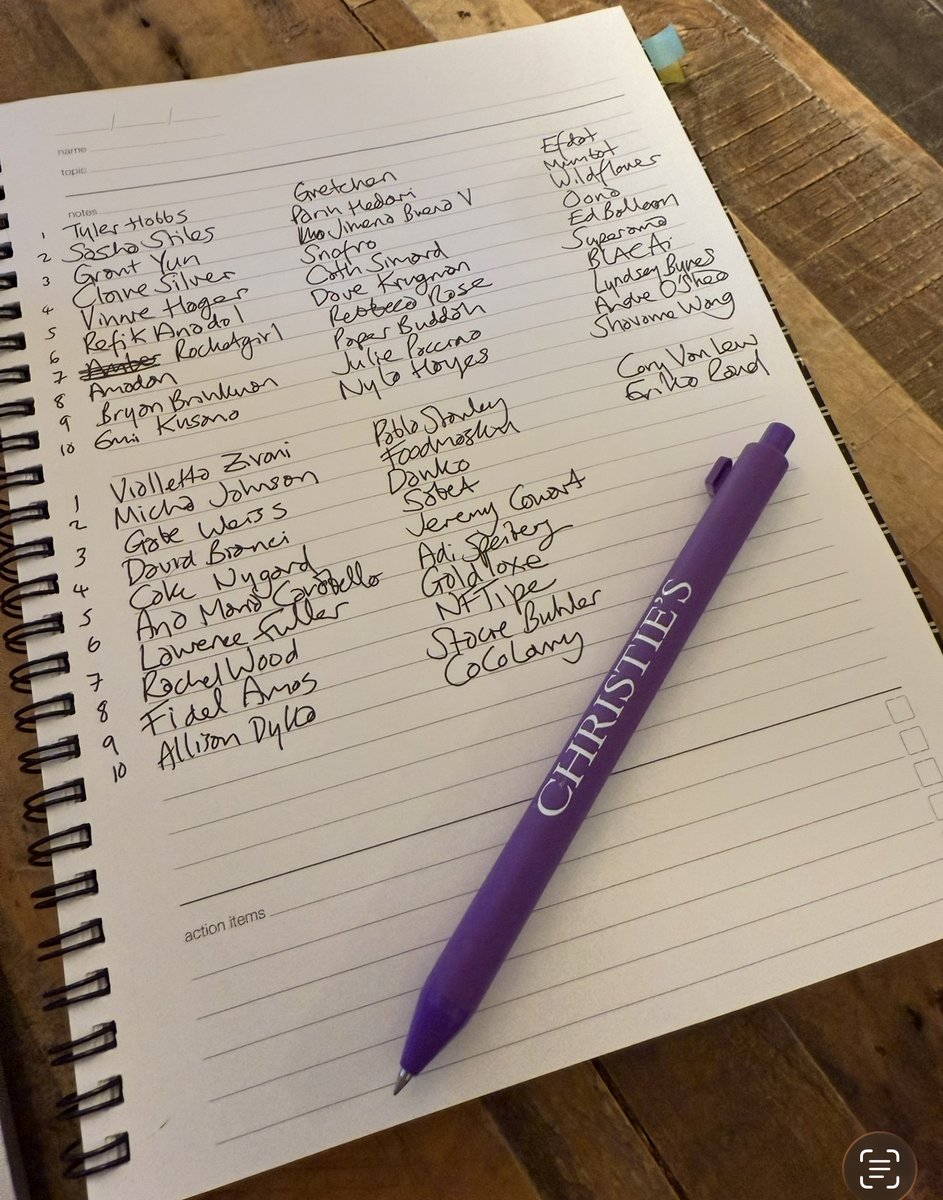 name
topic
notes
1 Tyler Hobbs
2 Sasha Stiles
3 Grant Yun
4 Claire Silver
5 Vinnie Hager
6 Refik Anadol
7 Rocketgirl
8 Amadon
9 Bryan Brinkman
10 Emi Kusano
Gretchen
Parin Hedari
Jimena Buena V
Snafro
Cath Simard
Dave Krugman
Rebbeca Rose
Paper Buddah
Julie Paccino
Nyla Hayes
Efdot
Mumbot
Wildflower
Oona
Ed Balloon
Superama
BLAC Ai
Lyndsey Byrnes
Andre O'Shea
Shavonne Wong
Cory Van Lew
Eriko
1 Violletta Zironi
2 Micha Johnson
3 Gabe Weiss
4 David Bianci
5 Cake Nygard
6 Ana Maria Caballo
7 Lawrence Fuller
8 Rachel Wood
9 Fidel Amos
10 Allison Dyke
Pablo Stanley
Foodmasku
Danko
Sabet
Jeremy Cowart
Adi
Goldtoxe
NFTipe
Stacie Buhler
CoCoLamy
action items
CHRISTIE'S